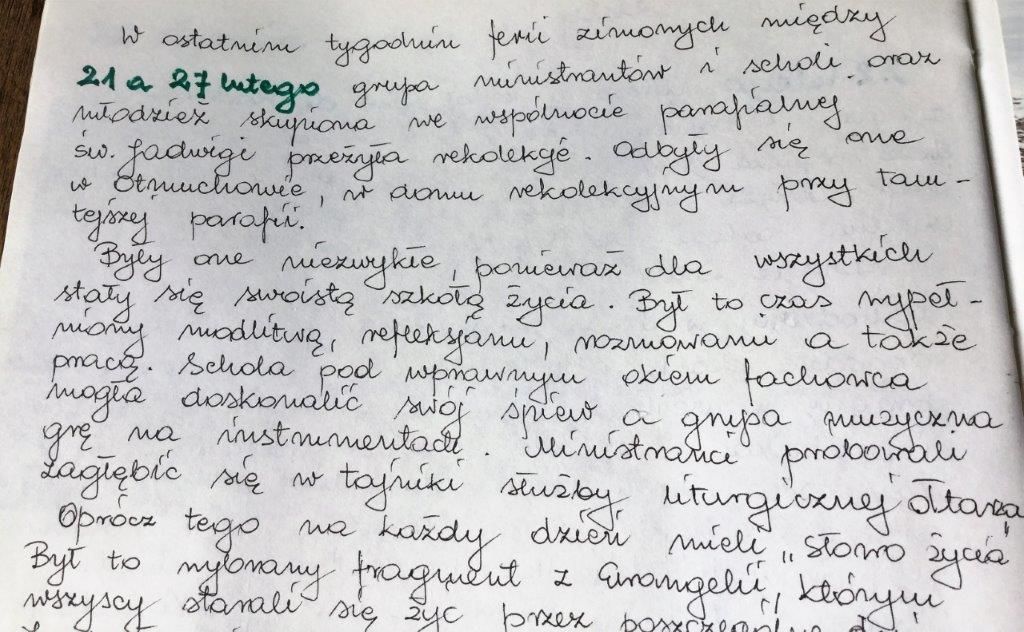 W ostatnim tygodniu ferii zimowych między
21 a 27 lutego grupa ministrantów i scholi oraz
młodzież skupiona we wspólnocie parafialnej
św. Jadwigi przeżyła rekolekcje. Odbyły się one
w Otmuchowie, w domu rekolekcyjnym przy tam-
tejszej parafii.
Były one niezwykłe, ponieważ dla wszystkich
stały się swoistą szkołą życia. Był to czas wypeł-
niony modlitwą, refleksjami, rozmowami a także
pracą. Schola pod wprawnym okiem fachowca
mogła doskonalić swój śpiew a grupa muzyczna
grę na instrumentach. Ministranci probowali
zagłębić się w tajniki służby liturgicznej ołtarza
Oprócz tego na każdy dzień mieli „słowo życia"
Był to wybrany fragment z Ewangelii, którym
wszyscy starali się żyć przez